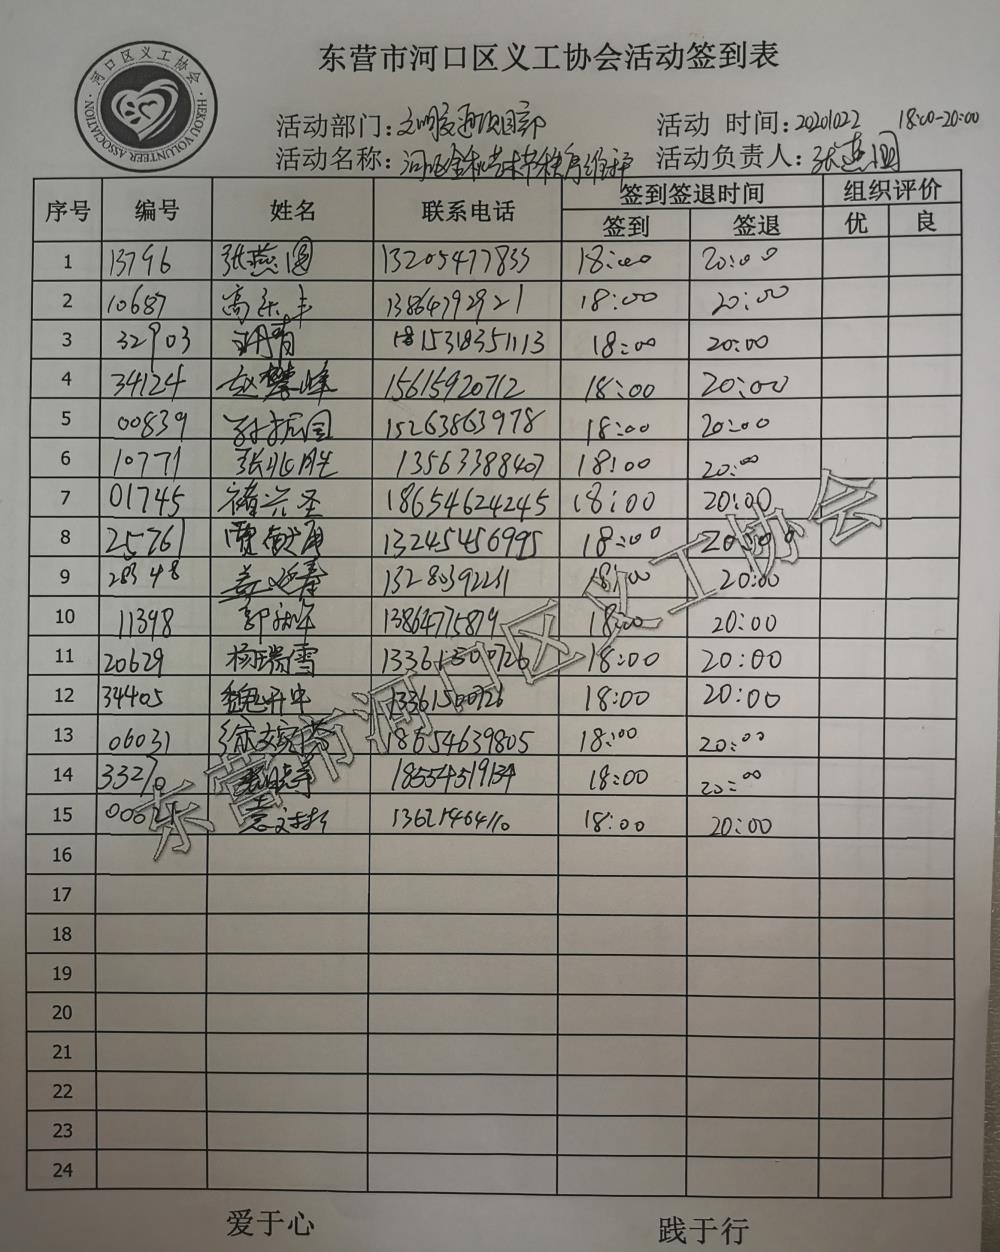 东营市河口区义工协会活动签到表
河口区义工协会
HEKOU VOLUNTEER ASSOCIATION
活动部门：文明交通项目部 活动 时间：20201022 18:00-20:00
活动名称：河口区金秋艺术节秩序维护 活动负责人：张燕圆
序号 编号 姓名 联系电话 签到签退时间 组织评价
签到 签退 优 良
1 13796 张燕圆 13205477833 18:00 20:00
2 10687 高乐丰 13864792921 18:00 20:00
3 32903 15318351113 18:00 20:00
4 34124 赵攀峰 15615920712 18:00 20:00
5 00839 15263863978 18:00 20:00
6 10771 张兆胜 13563388407 18:00 20:00
7 01745 褚兴圣 18654624245 18:00 20:00
8 25761 贾敏海 13245456995 18:00 20:00
9 28348 姜延春 13280392231 18:00 20:00
10 11398 郭新年 13864775879 18:00 20:00
11 20629 杨瑞雪 13361500726 18:00 20:00
12 34405 魏开忠 13361500726 18:00 20:00
13 06031 18654639805 18:00 20:00
14 33270 18554519134 18:00 20:00
15 18:00 20:00
16
17
18
19
20
21
22
23
24
爱于心 践于行
东营市河口区义工协会